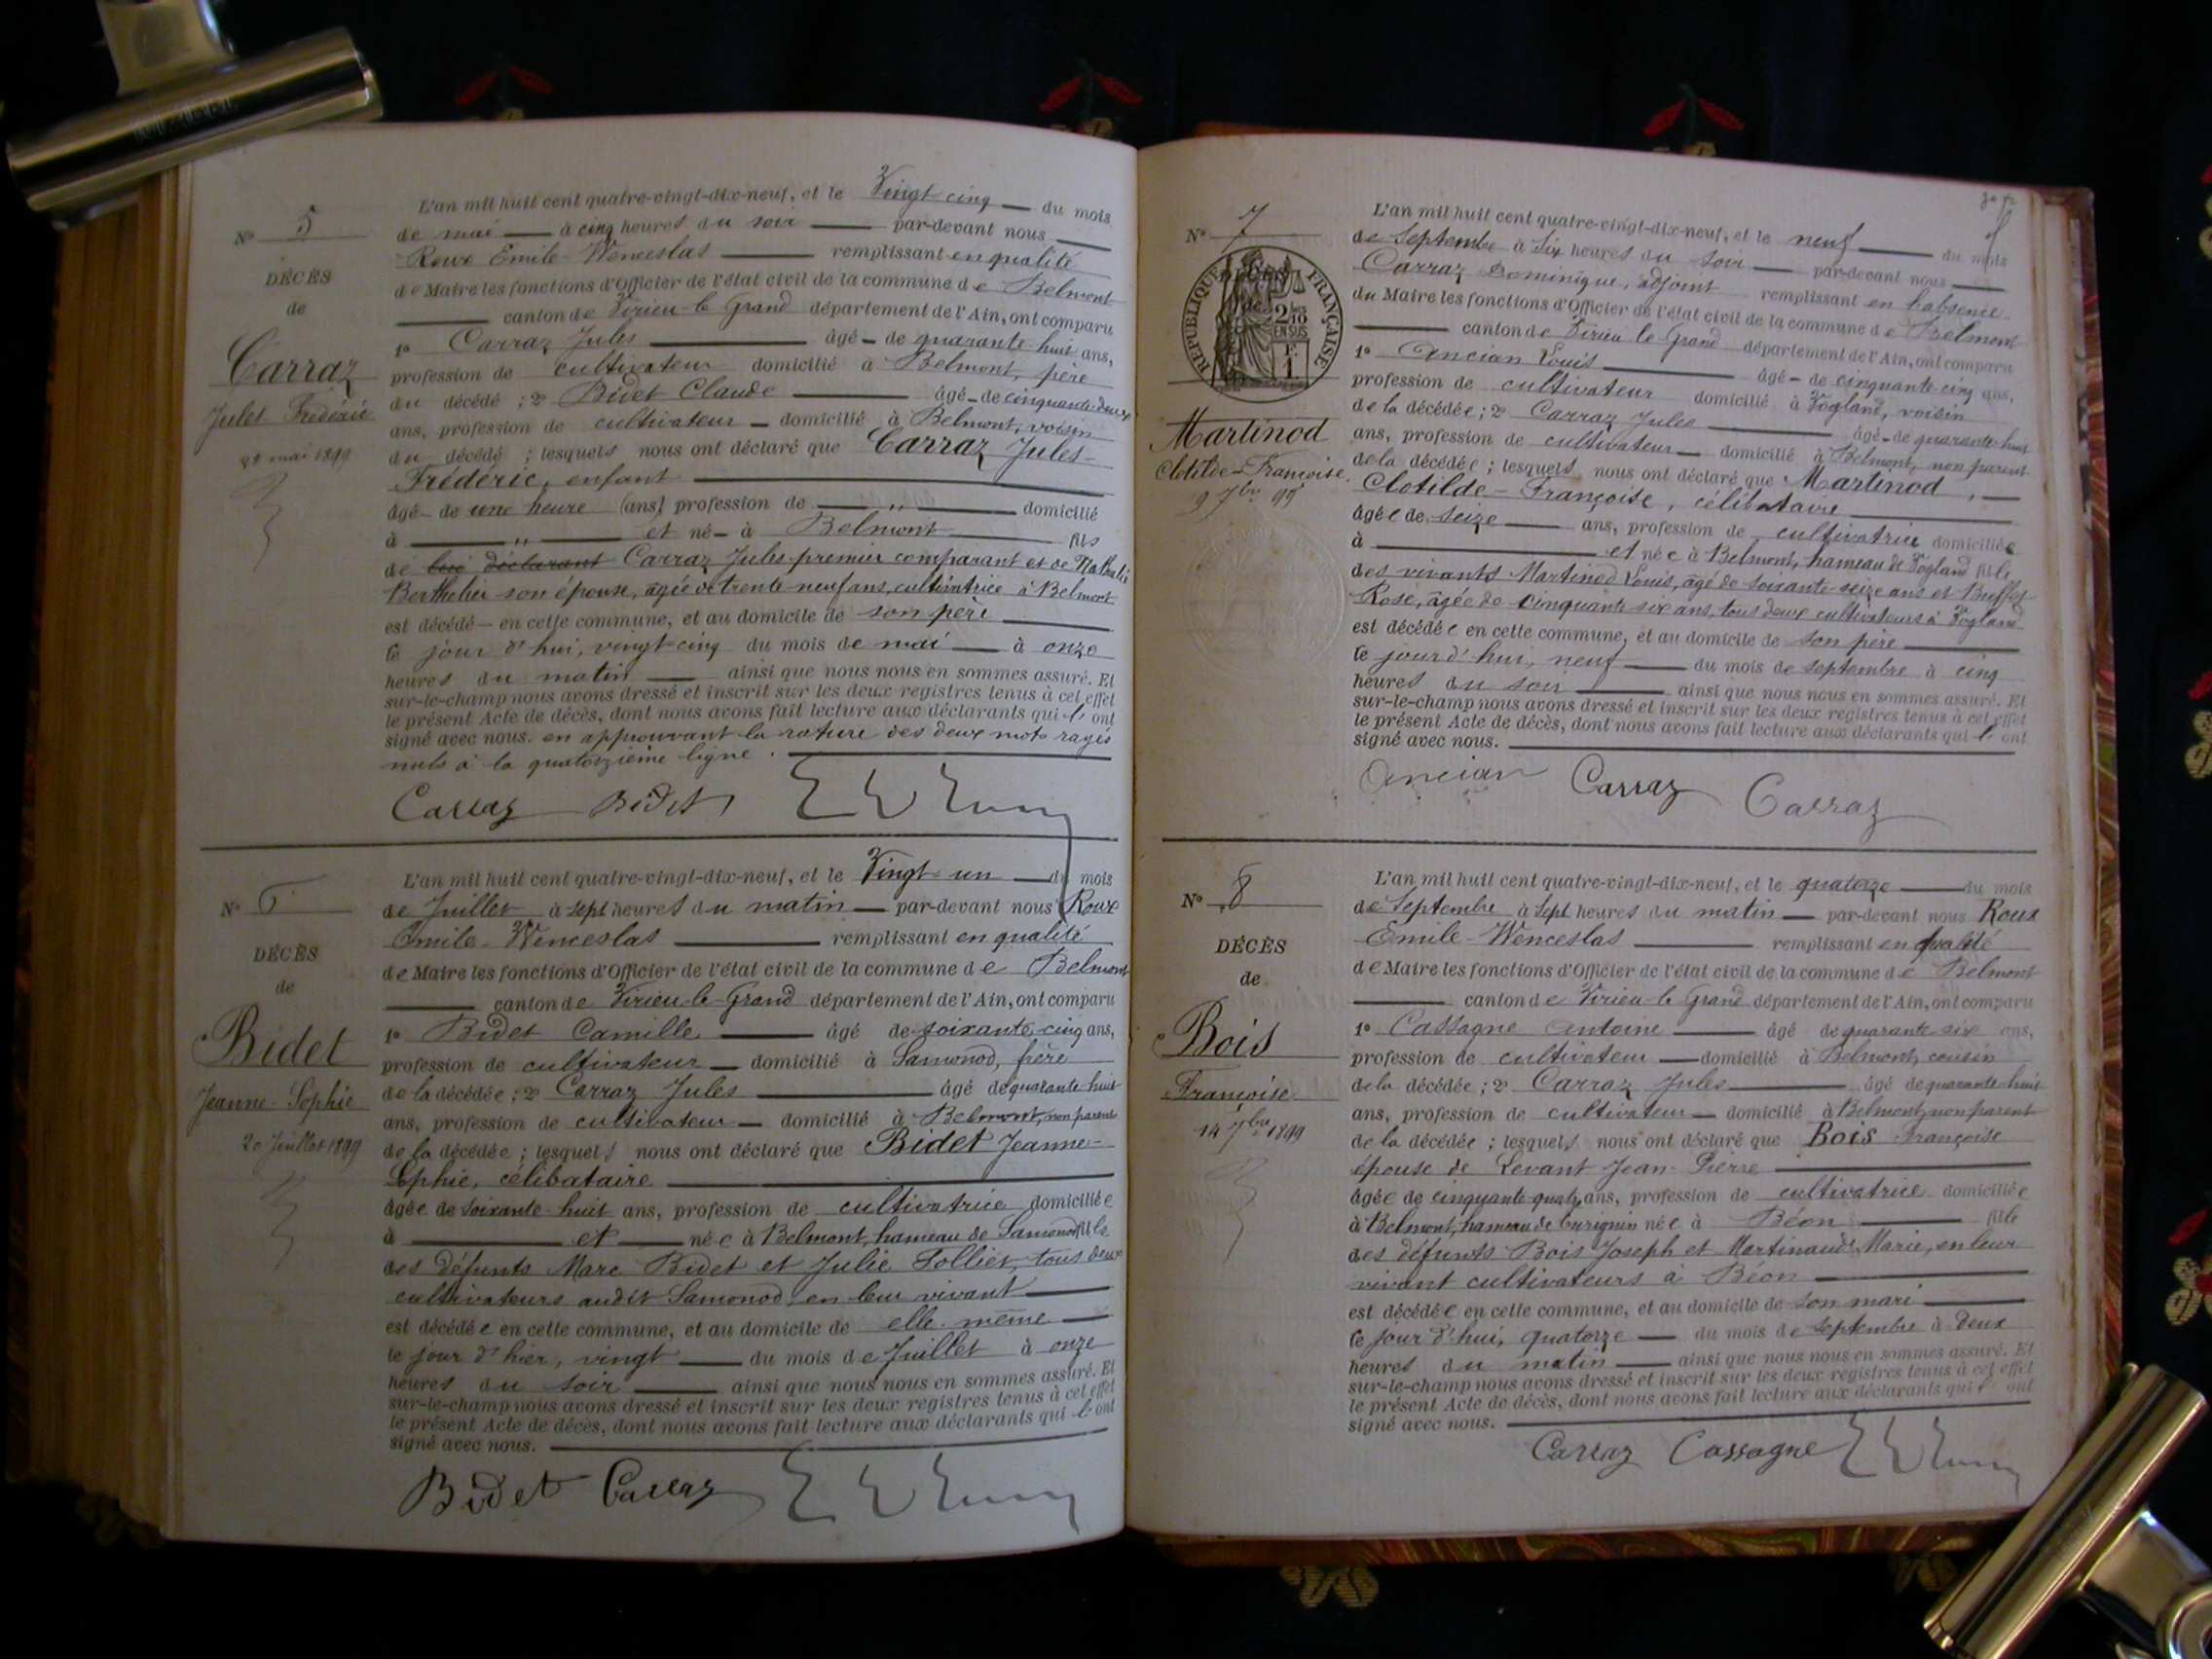 N° 5
DÉCÈS
de
Carraz
Jules Frédéric
25 mai 1899
L'an mil huit cent quatre-vingt-dix-neuf, et le Vingt cinq du mois
de mai à cinq heures du soir par-devant nous
Roux Emile-Wenceslas remplissant en qualité
de Maire les fonctions d'Officier de l'état civil de la commune de Belmont
canton de Virieu-le-Grand département de l'Ain, ont comparu
1° Carraz Jules âgé de quarante-huit ans,
profession de cultivateur domicilié à Belmont, père
du décédé ; 2° Bidet Claude âgé de cinquante deux
ans, profession de cultivateur domicilié à Belmont, voisin
du décédé ; lesquels nous ont déclaré que Carraz Jules-
Frédéric, enfant
âgé de une heure (ans) profession de " domicilié
à " et né à Belmont fils
de lui déclarant Carraz Jules premier comparant et de Nathalie
Berthelier son épouse, âgée de trente-neuf ans, cultivatrice à Belmont
est décédé en cette commune, et au domicile de son père
le jour d'hui, vingt-cinq du mois de mai à onze
heures du matin ainsi que nous nous en sommes assuré. Et
sur-le-champ nous avons dressé et inscrit sur les deux registres tenus à cet effet
le présent Acte de décès, dont nous avons fait lecture aux déclarants qui l'ont
signé avec nous. en approuvant la rature des deux mots rayés
nuls à la quatorzième ligne.
Carraz Bidet
N° 6
DÉCÈS
de
Bidet
Jeanne-Sophie
20 Juillet 1899
L'an mil huit cent quatre-vingt-dix-neuf, et le Vingt-un du mois
de Juillet à sept heures du matin par-devant nous Roux
Emile-Wenceslas remplissant en qualité
de Maire les fonctions d'Officier de l'état civil de la commune de Belmont
canton de Virieu-le-Grand département de l'Ain, ont comparu
1° Bidet Camille âgé de soixante-cinq ans,
profession de cultivateur domicilié à Samonod, frère
de la décédée ; 2° Carraz Jules âgé de quarante-huit
ans, profession de cultivateur domicilié à Belmont, non parent
de la décédée ; lesquels nous ont déclaré que Bidet Jeanne-
Sophie, célibataire
âgée de soixante-huit ans, profession de cultivatrice domiciliée
à et née à Belmont, hameau de Samonod fille
des défunts Marc Bidet et Julie Tollier, tous deux
cultivateurs audit Samonod, en leur vivant
est décédée en cette commune, et au domicile de elle-même
le jour d'hier, vingt du mois de Juillet à onze
heures du soir ainsi que nous nous en sommes assuré. Et
sur-le-champ nous avons dressé et inscrit sur les deux registres tenus à cet effet
le présent Acte de décès, dont nous avons fait lecture aux déclarants qui l'ont
signé avec nous.
Bidet Carraz
N° 7
RÉPUBLIQUE FRANÇAISE
2/10
EN SUS
Martinod
Clotilde-Françoise
9 7bre 99
L'an mil huit cent quatre-vingt-dix-neuf, et le neuf du mois
de Septembre à Six heures du soir par-devant nous
Carraz Dominique, adjoint remplissant en l'absence
du Maire les fonctions d'Officier de l'état civil de la commune de Belmont
canton de Virieu le Grand département de l'Ain, ont comparu
1° Ancian Louis âgé de cinquante-cinq ans,
profession de cultivateur domicilié à Vogland, voisin
de la décédée ; 2° Carraz Jules âgé de quarante-huit
ans, profession de cultivateur domicilié à Belmont, non parent
de la décédée ; lesquels nous ont déclaré que Martinod,
Clotilde-Françoise, célibataire
âgée de seize ans, profession de cultivatrice domiciliée
à et née à Belmont, hameau de Vogland fille
des vivants Martinod Louis, âgé de soixante-seize ans et Buffet
Rose, âgée de cinquante-six ans, tous deux cultivateurs à Vogland
est décédée en cette commune, et au domicile de son père
le jour d'hui, neuf du mois de septembre à cinq
heures du soir ainsi que nous nous en sommes assuré. Et
sur-le-champ nous avons dressé et inscrit sur les deux registres tenus à cet effet
le présent Acte de décès, dont nous avons fait lecture aux déclarants qui l'ont
signé avec nous.
Ancian Carraz Carraz
N° 8
DÉCÈS
de
Bois
Françoise
14 7bre 1899
L'an mil huit cent quatre-vingt-dix-neuf, et le quatorze du mois
de Septembre à Sept heures du matin par-devant nous Roux
Emile-Wenceslas remplissant en qualité
de Maire les fonctions d'Officier de l'état civil de la commune de Belmont
canton de Virieu-le-Grand département de l'Ain, ont comparu
1° Cassagne Antoine âgé de quarante-six ans,
profession de cultivateur domicilié à Belmont, cousin
de la décédée ; 2° Carraz Jules âgé de quarante-huit
ans, profession de cultivateur domicilié à Belmont, non parent
de la décédée ; lesquels nous ont déclaré que Bois Françoise
épouse de Levant Jean-Pierre
âgée de cinquante-quatre ans, profession de cultivatrice domiciliée
à Belmont, hameau de née à Béon fille
des défunts Bois Joseph et Martinaud Marie, en leur
vivant cultivateurs à Béon
est décédée en cette commune, et au domicile de son mari
le jour d'hui, quatorze du mois de septembre à deux
heures du matin ainsi que nous nous en sommes assuré. Et
sur-le-champ nous avons dressé et inscrit sur les deux registres tenus à cet effet
le présent Acte de décès, dont nous avons fait lecture aux déclarants qui l'ont
signé avec nous.
Carraz Cassagne